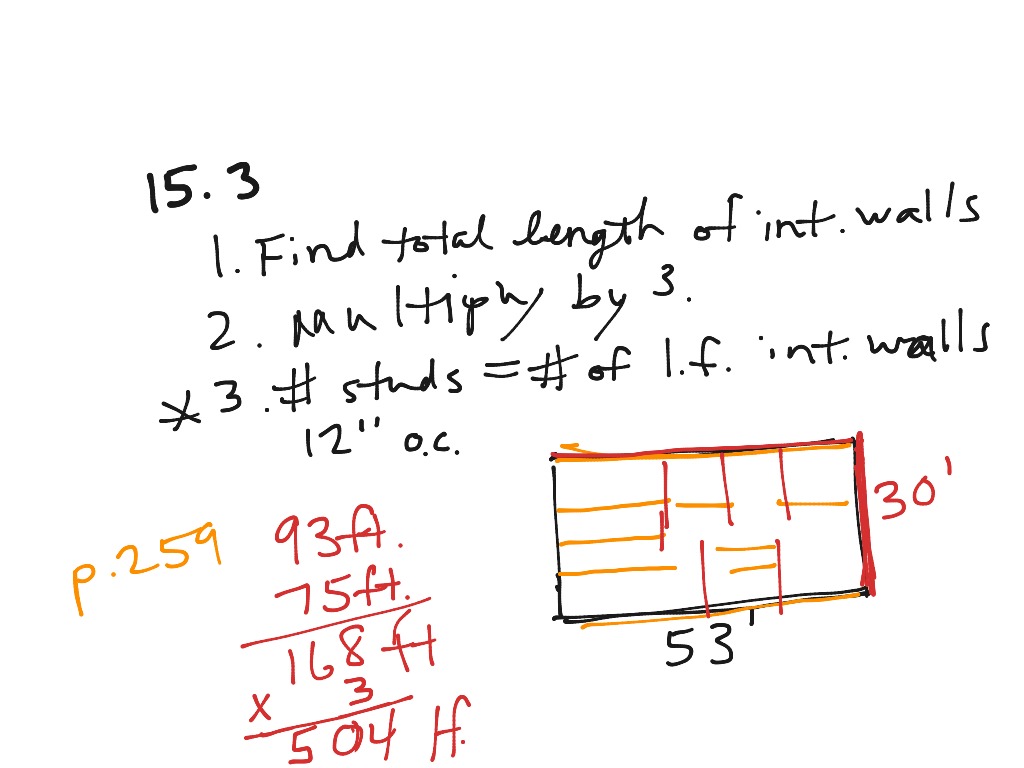 15.3
1. Find total length of int. walls
2. Multiply by 3.
* 3. # studs = # of l.f. int. walls
12" o.c.
30'
p.259
93ft.
75ft.
168 ft
x 3
504 lf.
53'